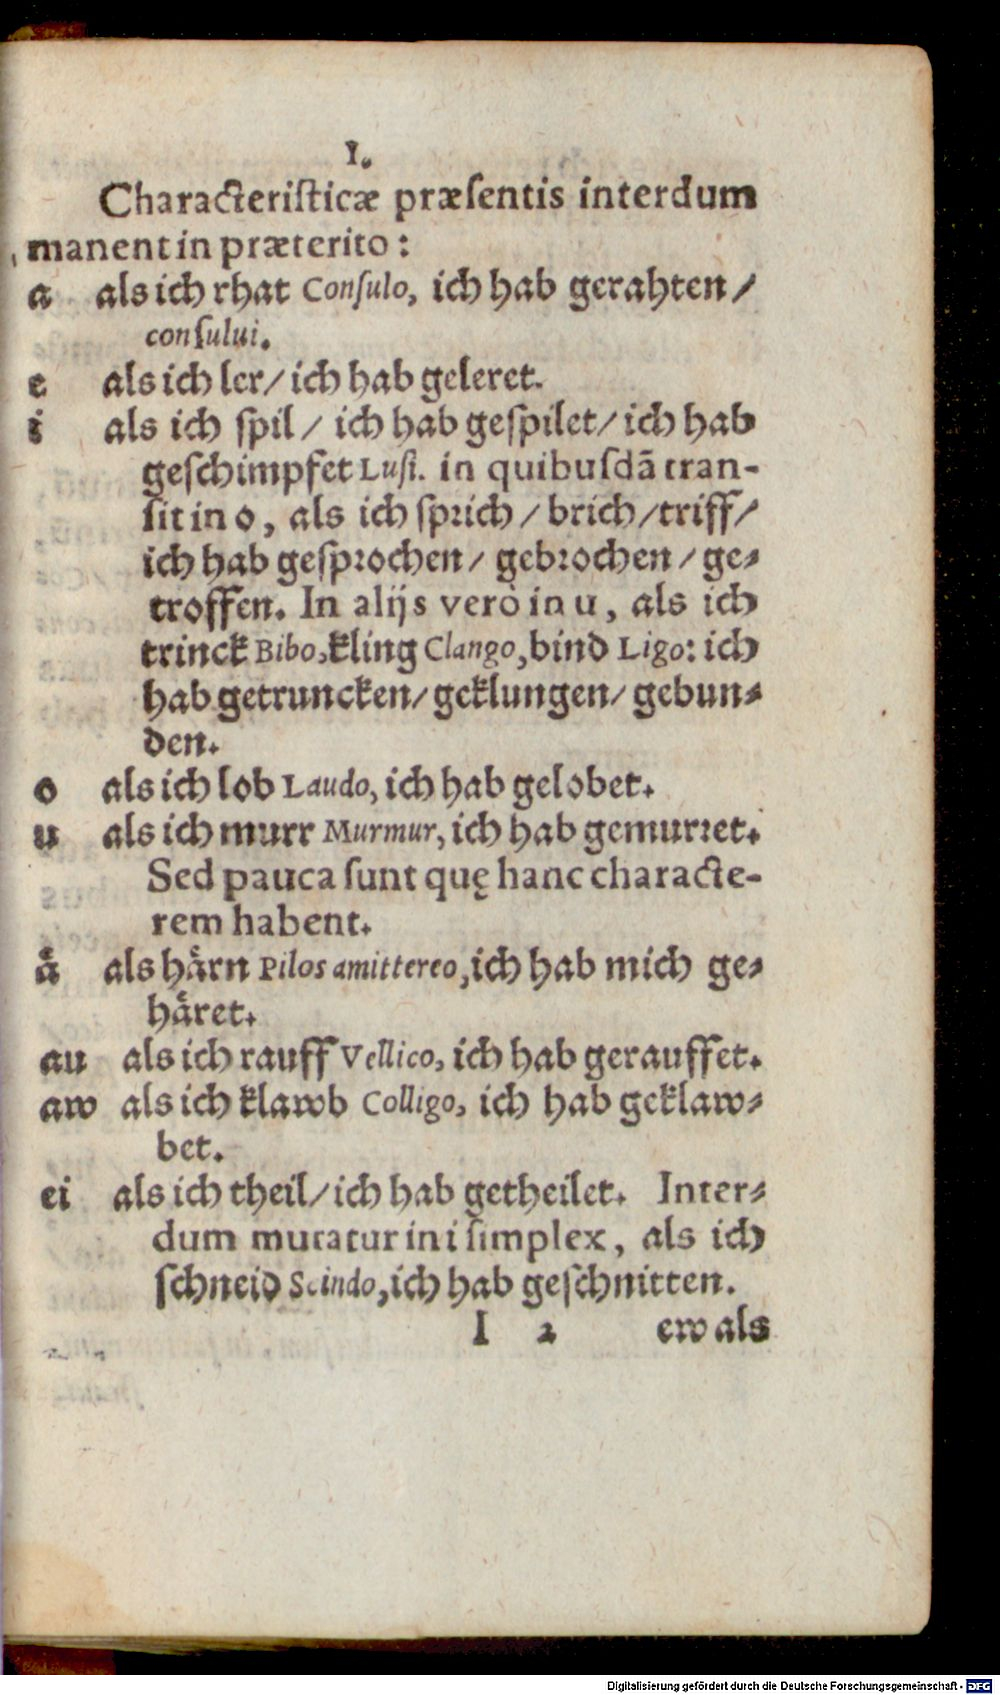 I.
Characteriſticæ præſentis interdum
manent in præterito:
a als ich rhat Conſulo, ich hab gerahten/
conſului.
e als ich ler/ ich hab geleret.
i als ich ſpil/ ich hab geſpilet/ ich hab
geſchimpfet Luſi. in quibuſdã tran-
ſit in o, als ich ſprich/ brich/ triff/
ich hab geſprochen/ gebrochen/ ge-
troffen. In alijs verò in u, als ich
trinck Bibo, kling Clango, bind Ligo: ich
hab getruncken/ geklungen/ gebun-
den.
o als ich lob Laudo, ich hab gelobet.
u als ich murr Murmur, ich hab gemurret.
Sed pauca ſunt quę hanc characte-
rem habent.
aͤ als haͤrn Pilos amittereo, ich hab mich ge-
haͤret.
au als ich rauff Vellico, ich hab gerauffet.
aw als ich klawb Colligo, ich hab geklaw-
bet.
ei als ich theil/ ich hab getheilet. Inter-
dum mutatur in i ſimplex, als ich
ſchneid Scindo, ich hab geſchnitten.
I 2 ew als
Digitalisierung gefördert durch die Deutsche Forschungsgemeinschaft - DFG